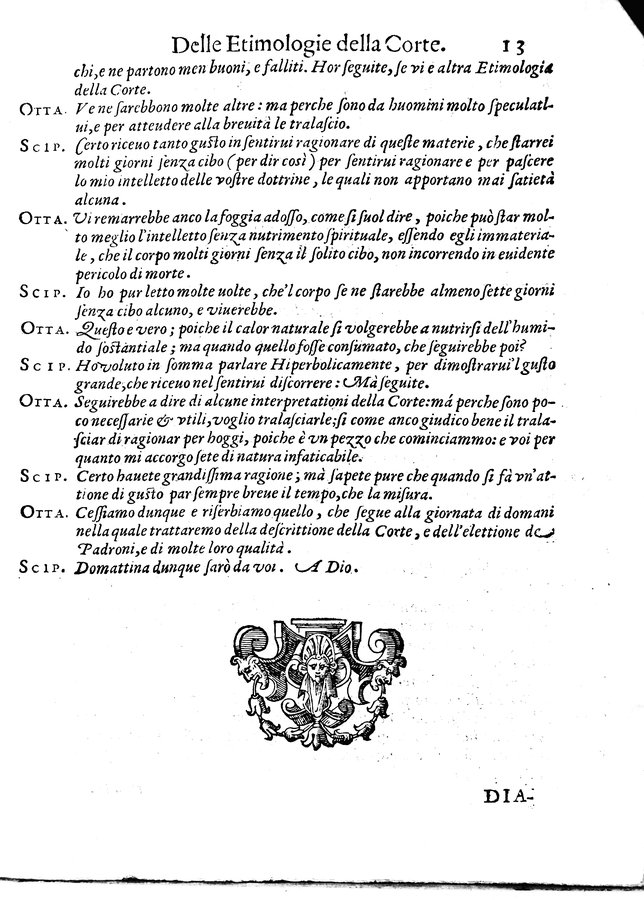 Delle Etimologie della Corte. 13
chi,e ne partono men buoni, e falliti. Hor ſeguite, ſe vi e altra Etimologia
della Corte.
OTTA. Ve ne ſarebbono molte altre : ma perche ſono da huomini molto ſpeculati-
ui,e per attendere alla breuità le tralaſcio.
SCIP. Certo riceuo tanto guſto in ſentirui ragionare di queſte materie, che ſtarrei
molti giorni ſenza cibo (per dir così) per ſentirui ragionare e per paſcere
lo mio intelletto delle voſtre dottrine, le quali non apportano mai ſatietà
alcuna.
OTTA. Vi remarrebbe anco la foggia adoſſo, come ſi ſuol dire, poiche può ſtar mol-
to meglio l'intelletto ſenza nutrimento ſpirituale, eſſendo egli immateria-
le, che il corpo molti giorni ſenza il ſolito cibo, non incorrendo in euidente
pericolo di morte.
SCIP. Io ho pur letto molte uolte, che'l corpo ſe ne ſtarebbe almeno ſette giorni
ſenza cibo alcuno, e viuerebbe.
OTTA. Queſto e vero; poiche il calor naturale ſi volgerebbe a nutrirſi dell'humi-
do ſoſtantiale; ma quando quello foſſe conſumato, che ſeguirebbe poi?
SCIP. Ho voluto in ſomma parlare Hiperbolicamente, per dimoſtrarui'l guſto
grande,che riceuo nel ſentirui diſcorrere: Mà ſeguite.
OTTA. Seguirebbe a dire di alcune interpretationi della Corte:má perche ſono po-
co neceſſarie & vtili, voglio tralaſciarle;ſi come anco giudico bene il trala-
ſciar di ragionar per hoggi, poiche è vn pezzo che cominciammo: e voi per
quanto mi accorgo ſete di natura infaticabile.
SCIP. Certo hauete grandiſſima ragione; mà ſapete pure che quando ſi fà vn'at-
tione di guſto par ſempre breue il tempo,che la miſura.
OTTA. Ceſſiamo dunque e riſerbiamo quello, che ſegue alla giornata di domani
nella quale trattaremo della deſcrittione della Corte, e dell'elettione de
Padroni,e di molte loro qualità.
SCIP. Domattina dunque ſarò da voi. A Dio.
DIA-